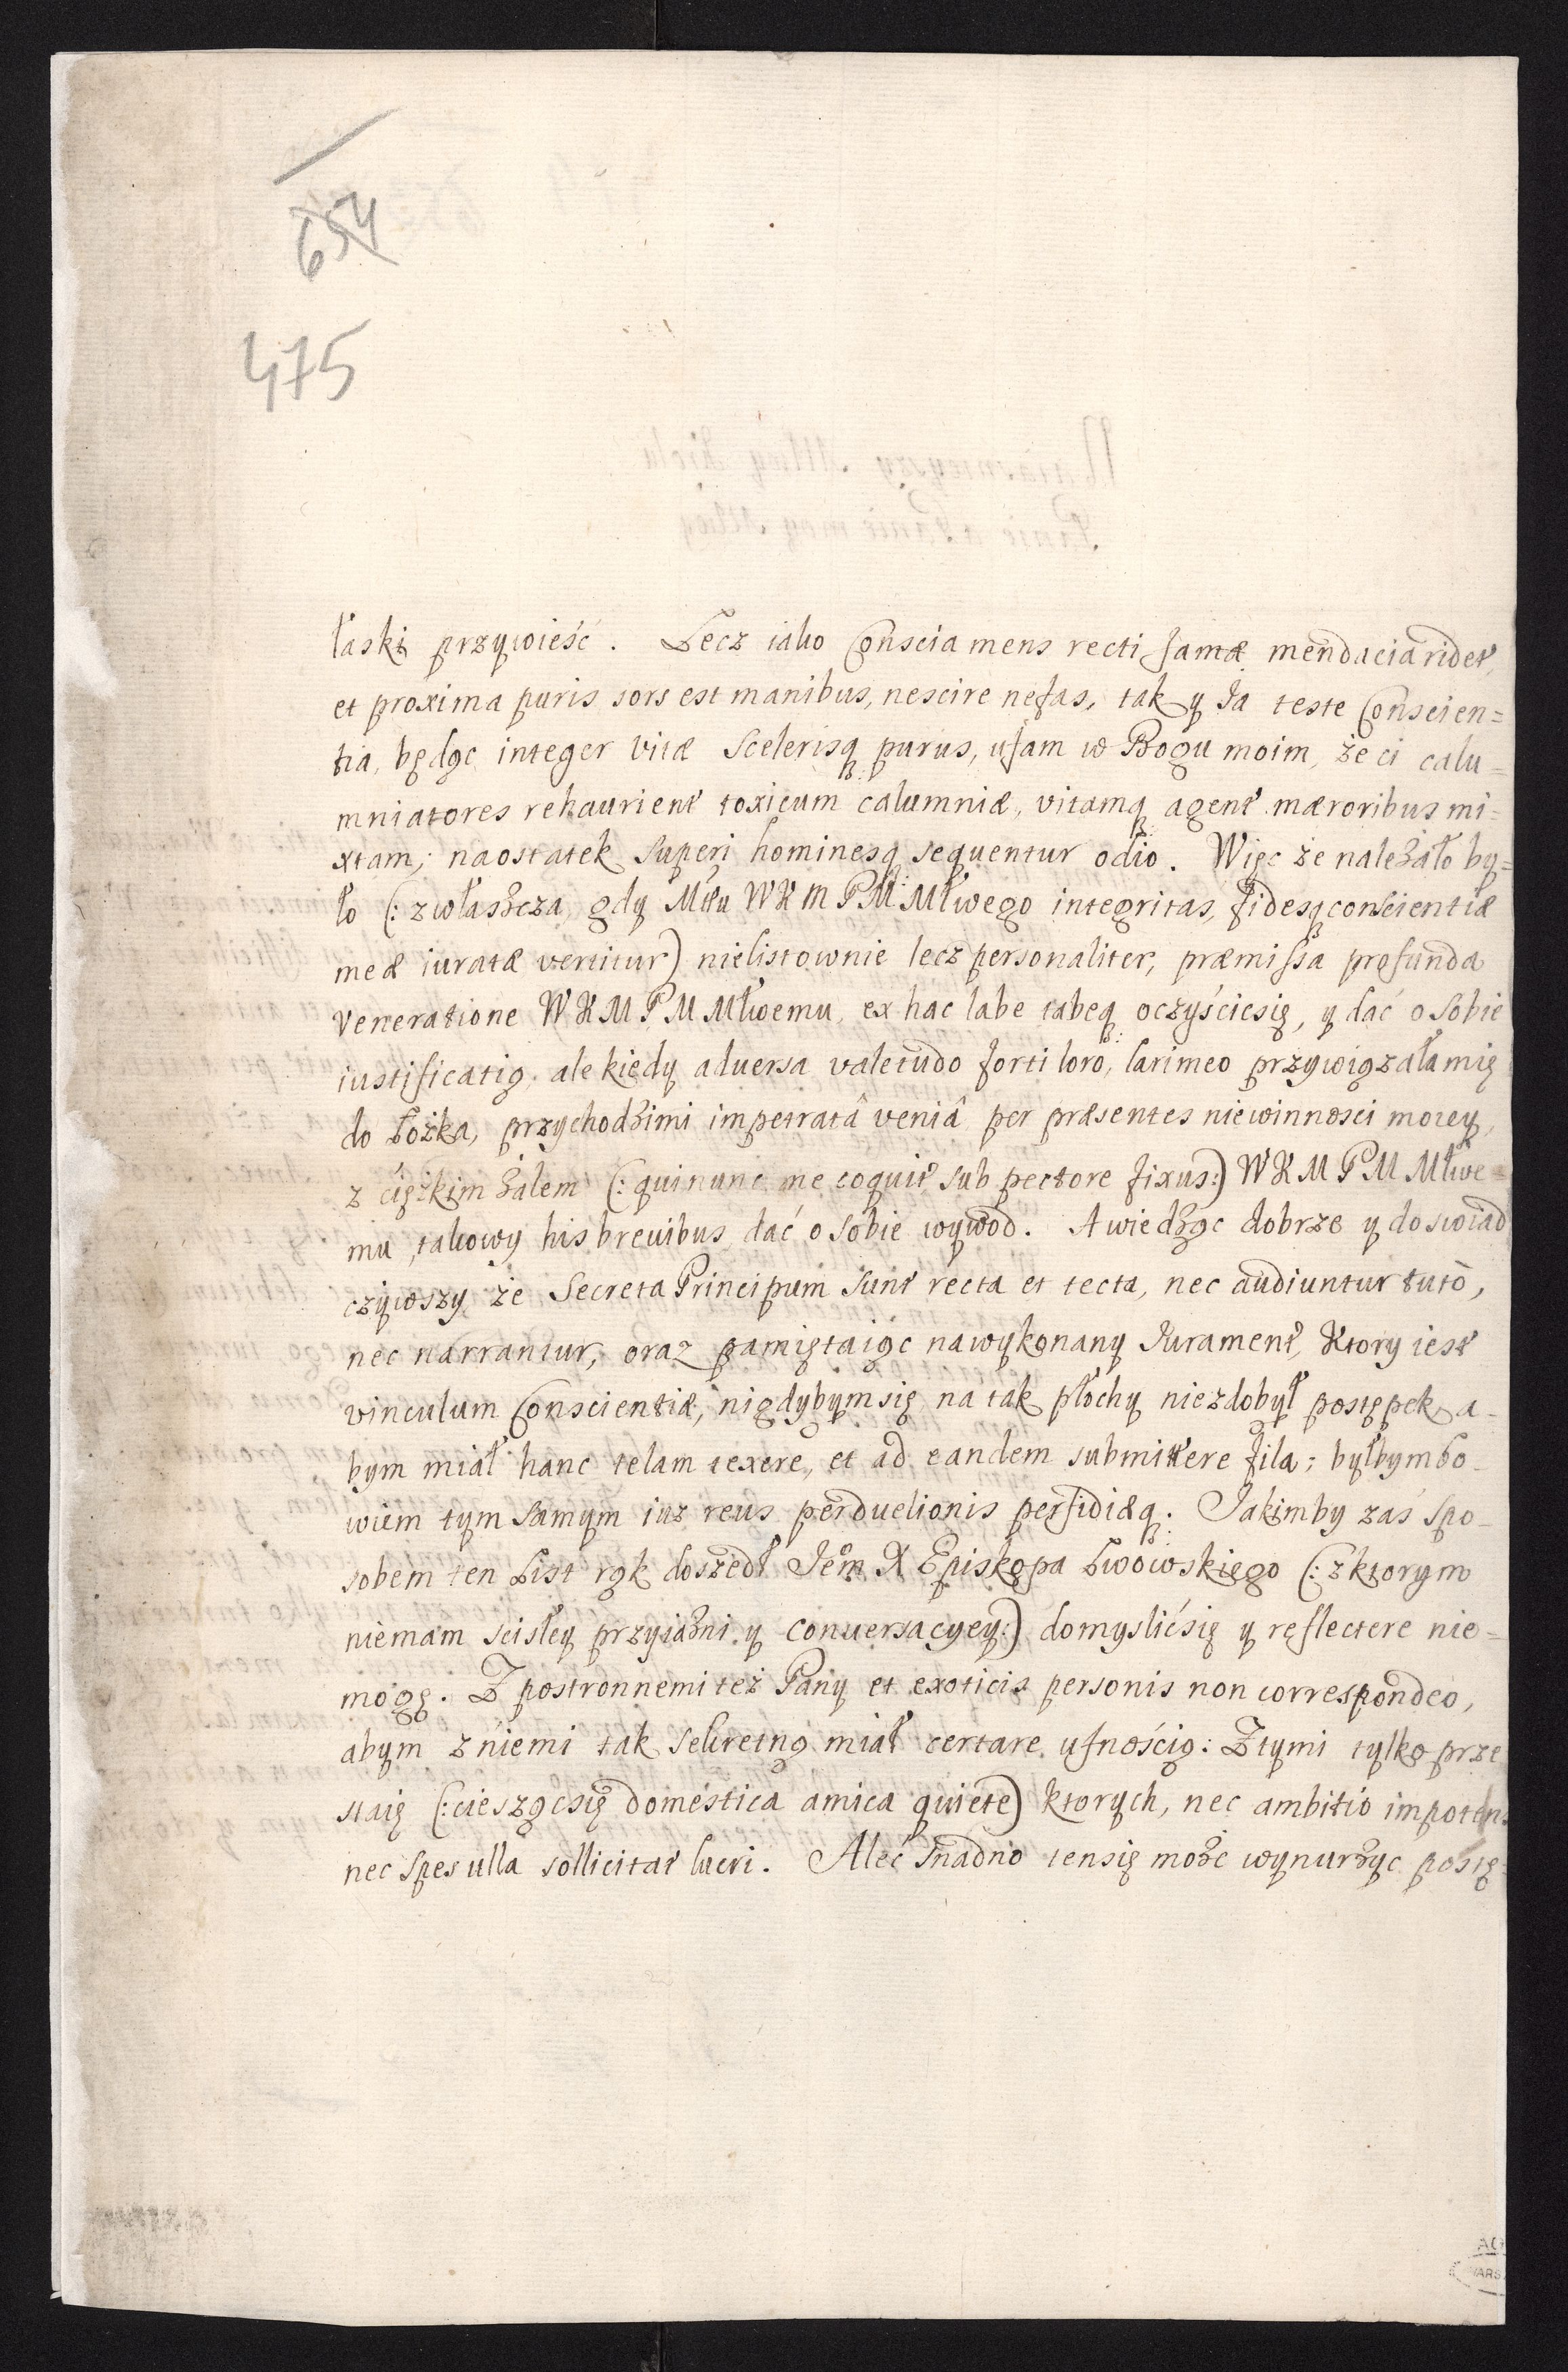 654
475
łaski przywieść. Lecz iako Conscia mens recti famæ mendacia ridet,
et proxima puris sors est manibus, nescire nefas, tak y Ja teste Conscien=
tia, będąc integer vitæ Scelerisq: purus, ufam w Bogu moim, że ci calu=
mniatores rehaurient toxicum calumniæ, vitamq: agent mæroribus mi=
xtam; naostatek Superi hominesq: sequentur odio. Więc że należało by=
ło (: zwłaszcza, gdy WKM PM Młwego integritas, fidesq conscientiæ
meæ iuratæ vertitur) nielistownie lecz personaliter, præmissa profunda
veneratione WKM PM Młwemu, ex hac labe tabeq: oczyścicsię, y dać o sobie
iustificatią; ale kiedy aduersa valetudo forti loro, larimeo przywiązałamię
do Łożka, przychodzimi impetratâ veniâ per præsentes niewinnosci moiey,
z ciężkim żalem (: qui nunc me coquit sub pectore fixus:) WKM PM Młwe=
mu, takowy his breuibus dać o sobie wywod. A wiedząc dobrze y doswiad
czywszy że Secreta Principum sunt recta et tecta, nec audiuntur tutò,
nec narrantur, oraz pamiętaiąc nawykonany Jurament, Ktory iest
vinculum Conscientiæ, nigdybymsię na tak płochy niezdobył postępek, a-
bym miał hanc telam texere, et ad eandem submittere fila; byłbymbo-
wiem tym samym iuz reus perduelionis perfidiæq:. Jakimby zaś spo-
sobem ten List rąk doszedł Jem X Episkopa Lwowskiego (: z ktorym
niemam scisłey przyiaźni y conuersacyey:) domyslićsię y reflectere nie=
mogę. Z postronnemi też Pany et exoticis personis non correspondeo,
abym z niemi tak sekretną miał certare ufnością: Z tymi tylko prze
staię (: cieszącsię domestica amica quiete) ktorych, nec ambitio impotens
nec spes ulla sollicitat lucri. Aleć snadno tensię może wynurzyc postę=